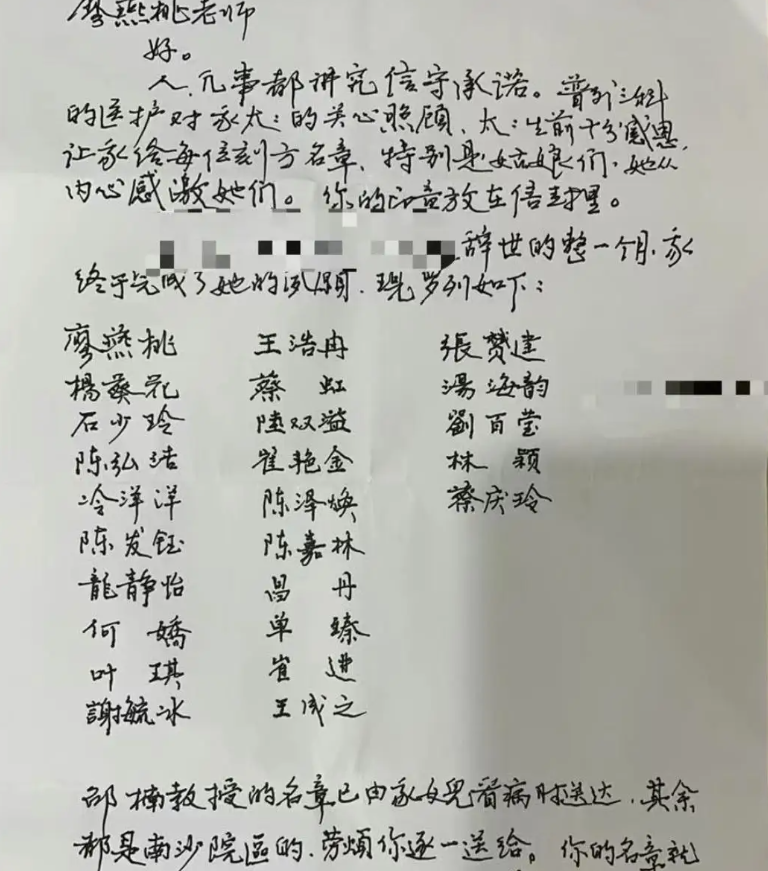 廖燕桃老师
好。
人、凡事都讲究信守承诺。普外三科
的医护对家太太的关心照顾、太太生前十分感恩,
让家给每位刻方名章、特别是姑娘们,她从
内心感激她们。你的印章放在信封里。
辞世的整一个月,家
终于完成了她的夙愿、现罗列如下:
廖燕桃 王浩冉 張赟建
楊葵花 蔡虹 湯海韵
石少玲 陸双溢 劉百莹
陈弘浩 崔艳金 林颖
冷洋洋 陈泽焕 蔡庆玲
陈发钰 陈嘉林
龍静怡 昌丹
何嬌 单臻
叶琪 崔遊
謝毓冰 王成之
邵楠教授的名章已由家女儿看病时送达,其余
都是南沙院區的、劳煩你逐一送给。你的名章就